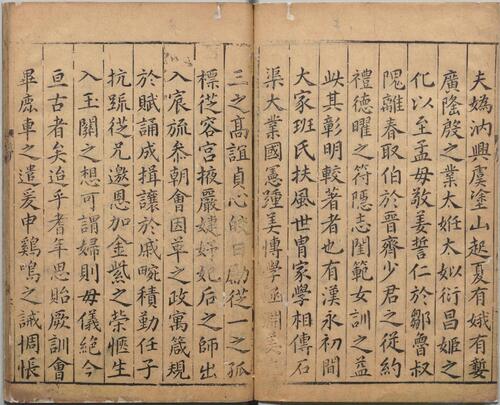 夫嬀汭興虞塗山起夏有娀有㜪
廣隆殷之業太姙太姒衍昌姬之
化以至孟母敬姜誓仁於鄒魯叔
隗離春取伯於晉齊少君之從約
禮德曜之符隱志閨範女訓之益
此其彰明較著者也有漢永初間
大家班氏扶風世冑家學相傳石
渠大業國憲踵美博學淵美
三之髙誼貞心皎日勵從一之孤
標從容宮掖嚴婕妤妃后之師出
入宸旒叅朝會因革之政寓箴規
於賦誦成揖讓於戚畹積勤任子
抗疏從兄邀恩加金紫之榮愜生
入玉關之想可謂婦則母儀絕今
亘古者矣迨乎耆年思貽厥訓會
畢鹿車之遣爰申鷄鳴之誡惆悵